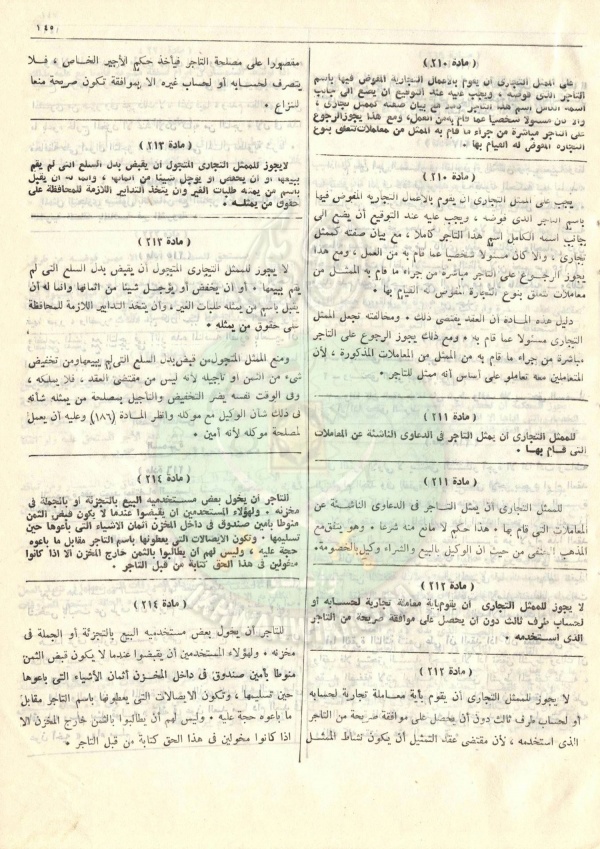 ١٤٥
( مادة ٢١٠ )
على الممثل التجارى أن يقوم بالاعمال التجارية المفوض فيها باسم
التاجر الذى فوضه ، ويجب عليه عند التوقيع ان يضع الى جانب
اسمه الكامل اسم هذا التاجر مع بيان صفته كممثل تجارى ،
والا كان مسئولا شخصيا عما قام به من العمل، ومع هذا يجوز الرجوع
على التاجر مباشرة من جراء ما قام به الممثل من معاملات تتعلق بنوع
التجارة المفوض له القيام بها .
( مادة ٢١٠ )
يجب على الممثل التجارى ان يقوم بالأعمال التجارية المفوض فيها
باسم التاجر الذى فوضه ، ويجب عليه عند التوقيع أن يضع الى
جانب اسمه الكامل اسم هذا التاجر كاملا ، مع بيان صفته كممثل
تجارى ، والا كان مسئولا شخصيا عما قام به من العمل ، ومع هذا
يجوز الرجوع على التاجر مباشرة من جراء ما قام به الممثل من
معاملات تتعلق بنوع التجارة المفوض له القيام بها .
دليل هذه المادة أن العقد يقتضى ذلك ، ومخالفته تجعل الممثل
التجارى مسئولا عما قام به ، ومع ذلك يجوز الرجوع على التاجر
مباشرة من جراء ما قام به الممثل من المعاملات المذكورة ، لأن
المتعاملين معه تعاملو على أساس أنه ممثل للتاجر .
( مادة ٢١١ )
للممثل التجارى ان يمثل التاجر فى الدعاوى الناشئة عن المعاملات
التى قام بها .
( مادة ٢١١ )
للممثل التجارى أن يمثل التاجر فى الدعاوى الناشئة عن
المعاملات التى قام بها . هذا حكم لا مانع منه شرعا . وهو يتفق مع
المذهب الحنفى من حيث ان الوكيل بالبيع والشراء وكيل بالخصومة.
( مادة ٢١٢ )
لا يجوز للممثل التجارى ان يقوم بأية معاملة تجارية لحسابه او
لحساب طرف ثالث دون ان يحصل على موافقة صريحة من التاجر
الذى استخدمه .
( مادة ٢١٢ )
لا يجوز للممثل التجارى أن يقوم بأية معاملة تجارية لحسابه
أو لحساب طرف ثالث دون أن يحصل على موافقة صريحة من التاجر
الذى استخدمه ، لأن مقتضى عقد التمثيل أن يكون نشاط الممثل
مقصورا على مصلحة التاجر فيأخذ حكم الأجير الخاص ، فلا
يتصرف لحسابه أو لحساب غيره الا بموافقة تكون صريحة منعا
للنزاع .
( مادة ٢١٣ )
لايجوز للممثل التجارى المتجول أن يقبض بدل السلع التى لم يقم
ببيعها او ان يخفض او يؤجل شيئا من اثمانها ، وانما له ان يقبل
باسم من يمثله طلبات الغير وان يتخذ التدابير اللازمة للمحافظة على
حقوق من يمثله .
( مادة ٢١٣ )
لا يجوز للممثل التجارى المتجول أن يقبض بدل السلع التى لم
يقم ببيعها . أو ان يخفض أو يؤجل شيئا من اثمانها وانما له أن
يقبل باسم من يمثله طلبات الغير ، وأن يتخذ التدابير اللازمة للمحافظة
على حقوق من يمثله .
ومنع الممثل المتجول من قبض بدل السلع التى لم يبيعها ومن تخفيض
شىء من الثمن أو تأجيله لأنه ليس من مقتضى العقد ، فلا يملكه ،
وفى الوقت نفسه يضر التخفيض والتأجيل بمصلحة من يمثله شأنه
فى ذلك شأن الوكيل مع موكله وانظر المادة (١٨٦) وعليه أن يعمل
لمصلحة موكله لأنه أمين .
( مادة ٢١٤ )
للتاجر ان يخول بعض مستخدميه البيع بالتجزئة أو بالجملة فى
مخزنه . ولهؤلاء المستخدمين ان يقبضوا عندما لا يكون قبض الثمن
منوطا بأمين صندوق فى داخل المخزن أثمان الاشياء التى باعوها حين
تسليمها . وتكون الايصالات التى يعطونها باسم التاجر مقابل ما باعوه
حجة عليه ، وليس لهم ان يطالبوا بالثمن خارج المخزن الا اذا كانوا
مخولين فى هذا الحق كتابة من قبل التاجر .
( مادة ٢١٤ )
للتاجر أن يخول بعض مستخدميه البيع بالتجزئة أو الجملة فى
مخزنه . ولهؤلاء المستخدمين أن يقبضوا عندما لا يكون قبض الثمن
منوطا بأمين صندوق فى داخل المخزن أثمان الأشياء التى باعوها
حين تسليمها ، وتكون الايصالات التى يعطونها باسم التاجر مقابل
ما باعوه حجة عليه . وليس لهم أن يطالبوا بالثمن خارج المخزن الا
اذا كانوا مخولين فى هذا الحق كتابة من قبل التاجر .